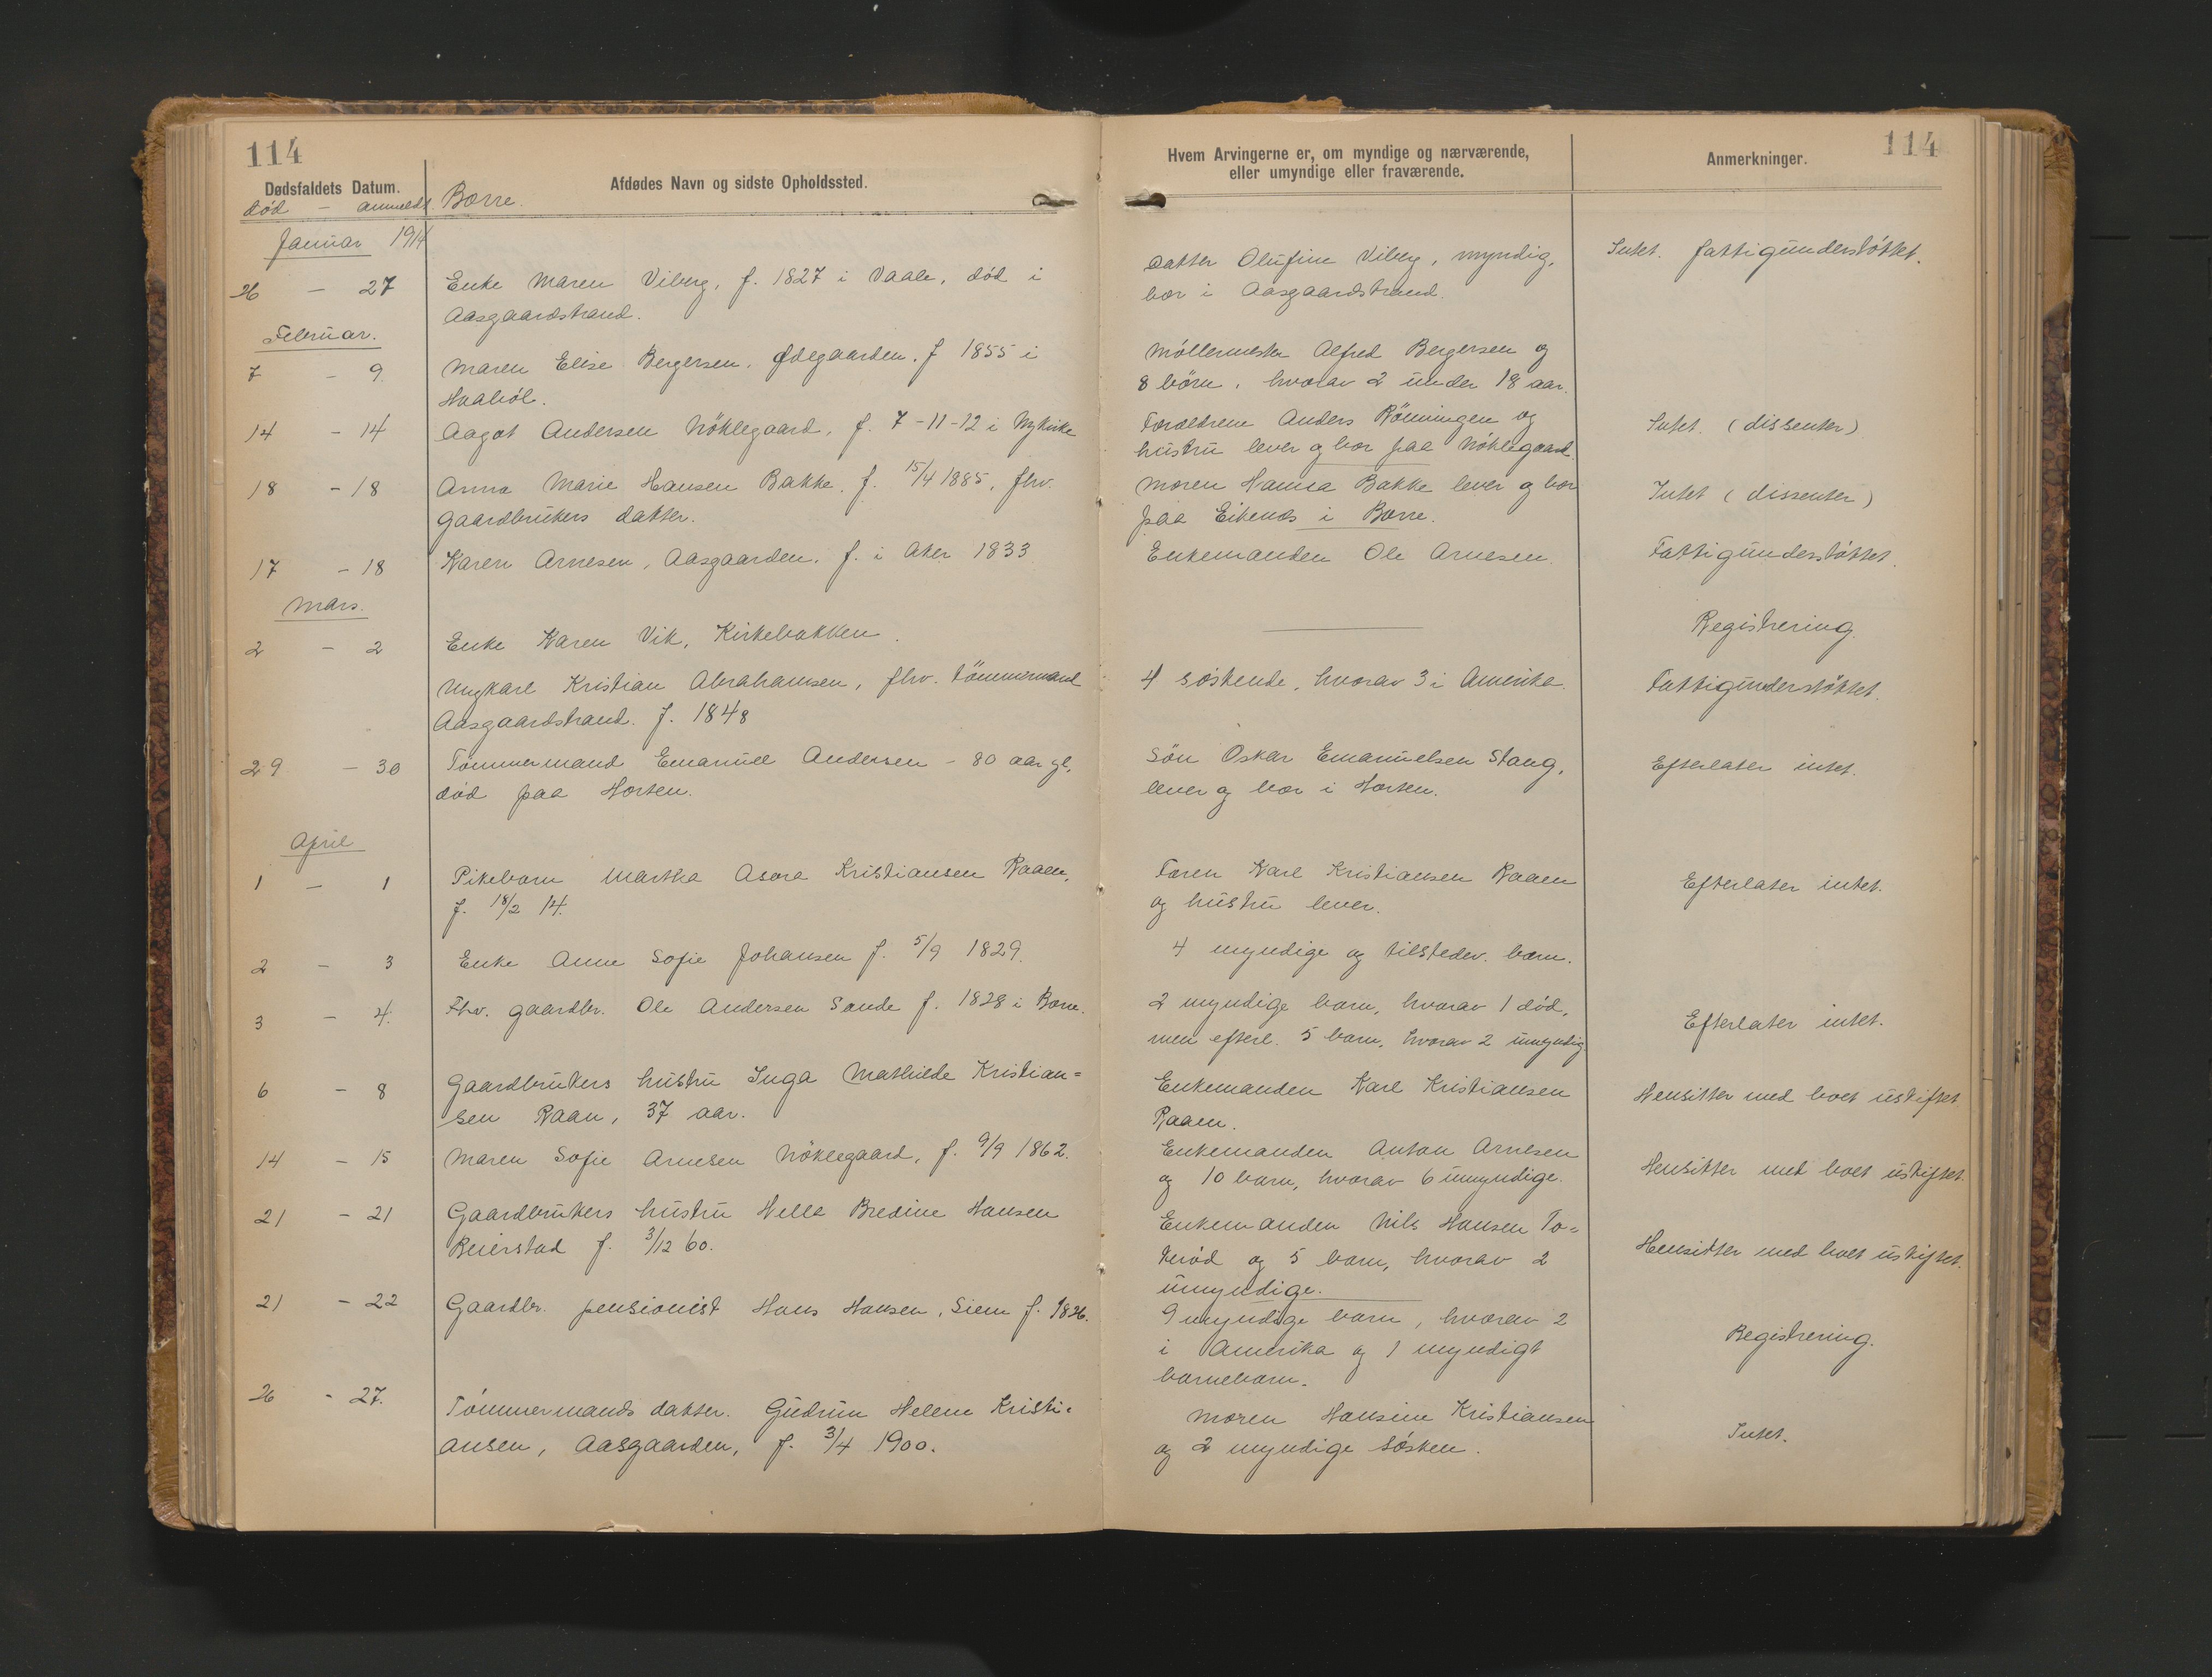 114
Dødsfaldets Datum.
Afdødes Navn og sidste Opholdssted.
død - anmeldt.
Borre.
Januar 1914
26 - 27
Enke Maren Viberg, f. 1827 i Vaale, død i
Aasgaardstrand.
Februar.
7 - 9
Maren Elise Bergersen, Ødegaarden, f 1855 i
Haabøl.
14 - 14
Aagot Andersen Nöklegaard, f. 7-11-12 i Nykirke
18 - 18
Anna Marie Hansen Bakke, f. 15/4 1885, fhv.
gaardbrukers datter.
17 - 18
Karen Arnesen, Aasgaarden, f. i Aker 1833
Mars.
2 - 2
Enke Karen Vik, Kirkebakken.
Ungkarl Kristian Abrahamsen, fhv. tömmermand
Aasgaardstrand. f. 1848
29 - 30
Tømmermand Emanuel Andersen - 80 aar gl,
død paa Horten.
April
1 - 1
Pikebarn Martha Asora Kristiansen Raaen,
f. 18/2 14.
2 - 3
Enke Anne Sofie Johansen f. 5/9 1829.
3 - 4.
Fhv. gaardbr. Ole Andersen Sande f. 1828 i Borre.
6 - 8
Gaardbrukers hustru Inga Mathilde Kristian=
sen Raan, 37 aar.
14 - 15
Maren Sofie Arnesen Nöklegaard, f. 9/9 1862.
21 - 21
Gaardbrukers hustru Helle Bredine Hansen
Beierstad f. 3/12 60.
21 - 22
Gaardbr. pensionist Hans Hansen, Siem f. 1826.
26 - 27.
Tømmermands datter. Gudrun Helene Kristi=
ansen, Aasgaarden, f. 3/4 1900.
114
Hvem Arvingerne er, om myndige og nærværende,
eller umyndige eller fraværende.
Anmerkninger.
Datter Olufine Viberg, myndig,
bor i Aasgaardstrand.
Intet. fattigunderstøttet.
Möllermester Alfred Bergersen og
8 börn, hvorav 2 under 18 aar.
Forældrene Anders Rönningen og
hustru lever og bor paa Nöklegaard.
Intet. (dissenter)
Moren Hanna Bakke lever og bor
paa Eikenes i Borre.
Intet (dissenter)
Enkemanden Ole Arnesen.
Fattigunderstøttet.
Registrering.
4 søskende, hvorav 3 i Amerika.
Fattigunderstøttet.
Sön Oskar Emanuelsen Stang,
lever og bor i Horten.
Efterlater intet.
Faren Karl Kristiansen Raaen
og hustru lever.
Efterlater intet.
4 myndige og tilstedev. barn.
2 myndige barn, hvorav 1 død,
men efterl. 5 barn, hvorav 2 umyndig
Efterlater intet.
Enkemanden Karl Kristiansen
Raaen.
Hensitter med boet uskiftet
Enkemanden Anton Arnesen
og 10 barn, hvorav 6 umyndige.
Hensitter med boet uskiftet.
Enkemanden Nils Hansen To=
kerød og 5 barn, hvorav 2
umyndige.
Hensitter med boet uskiftet.
9 myndige barn, hvorav 2
i Amerika og 1 myndigt
barnebarn.
Registrering.
Moren Hansine Kristiansen
og 2 myndige søsken.
Intet.